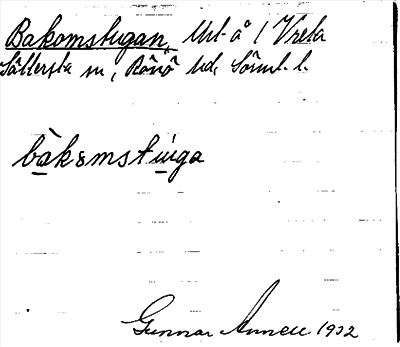 Bakomstugan, Utl. å / Vreta
Sättersta sn, Rönö hd, Sörml. l.
bakɷmstuga
Gunnar Annell 1932